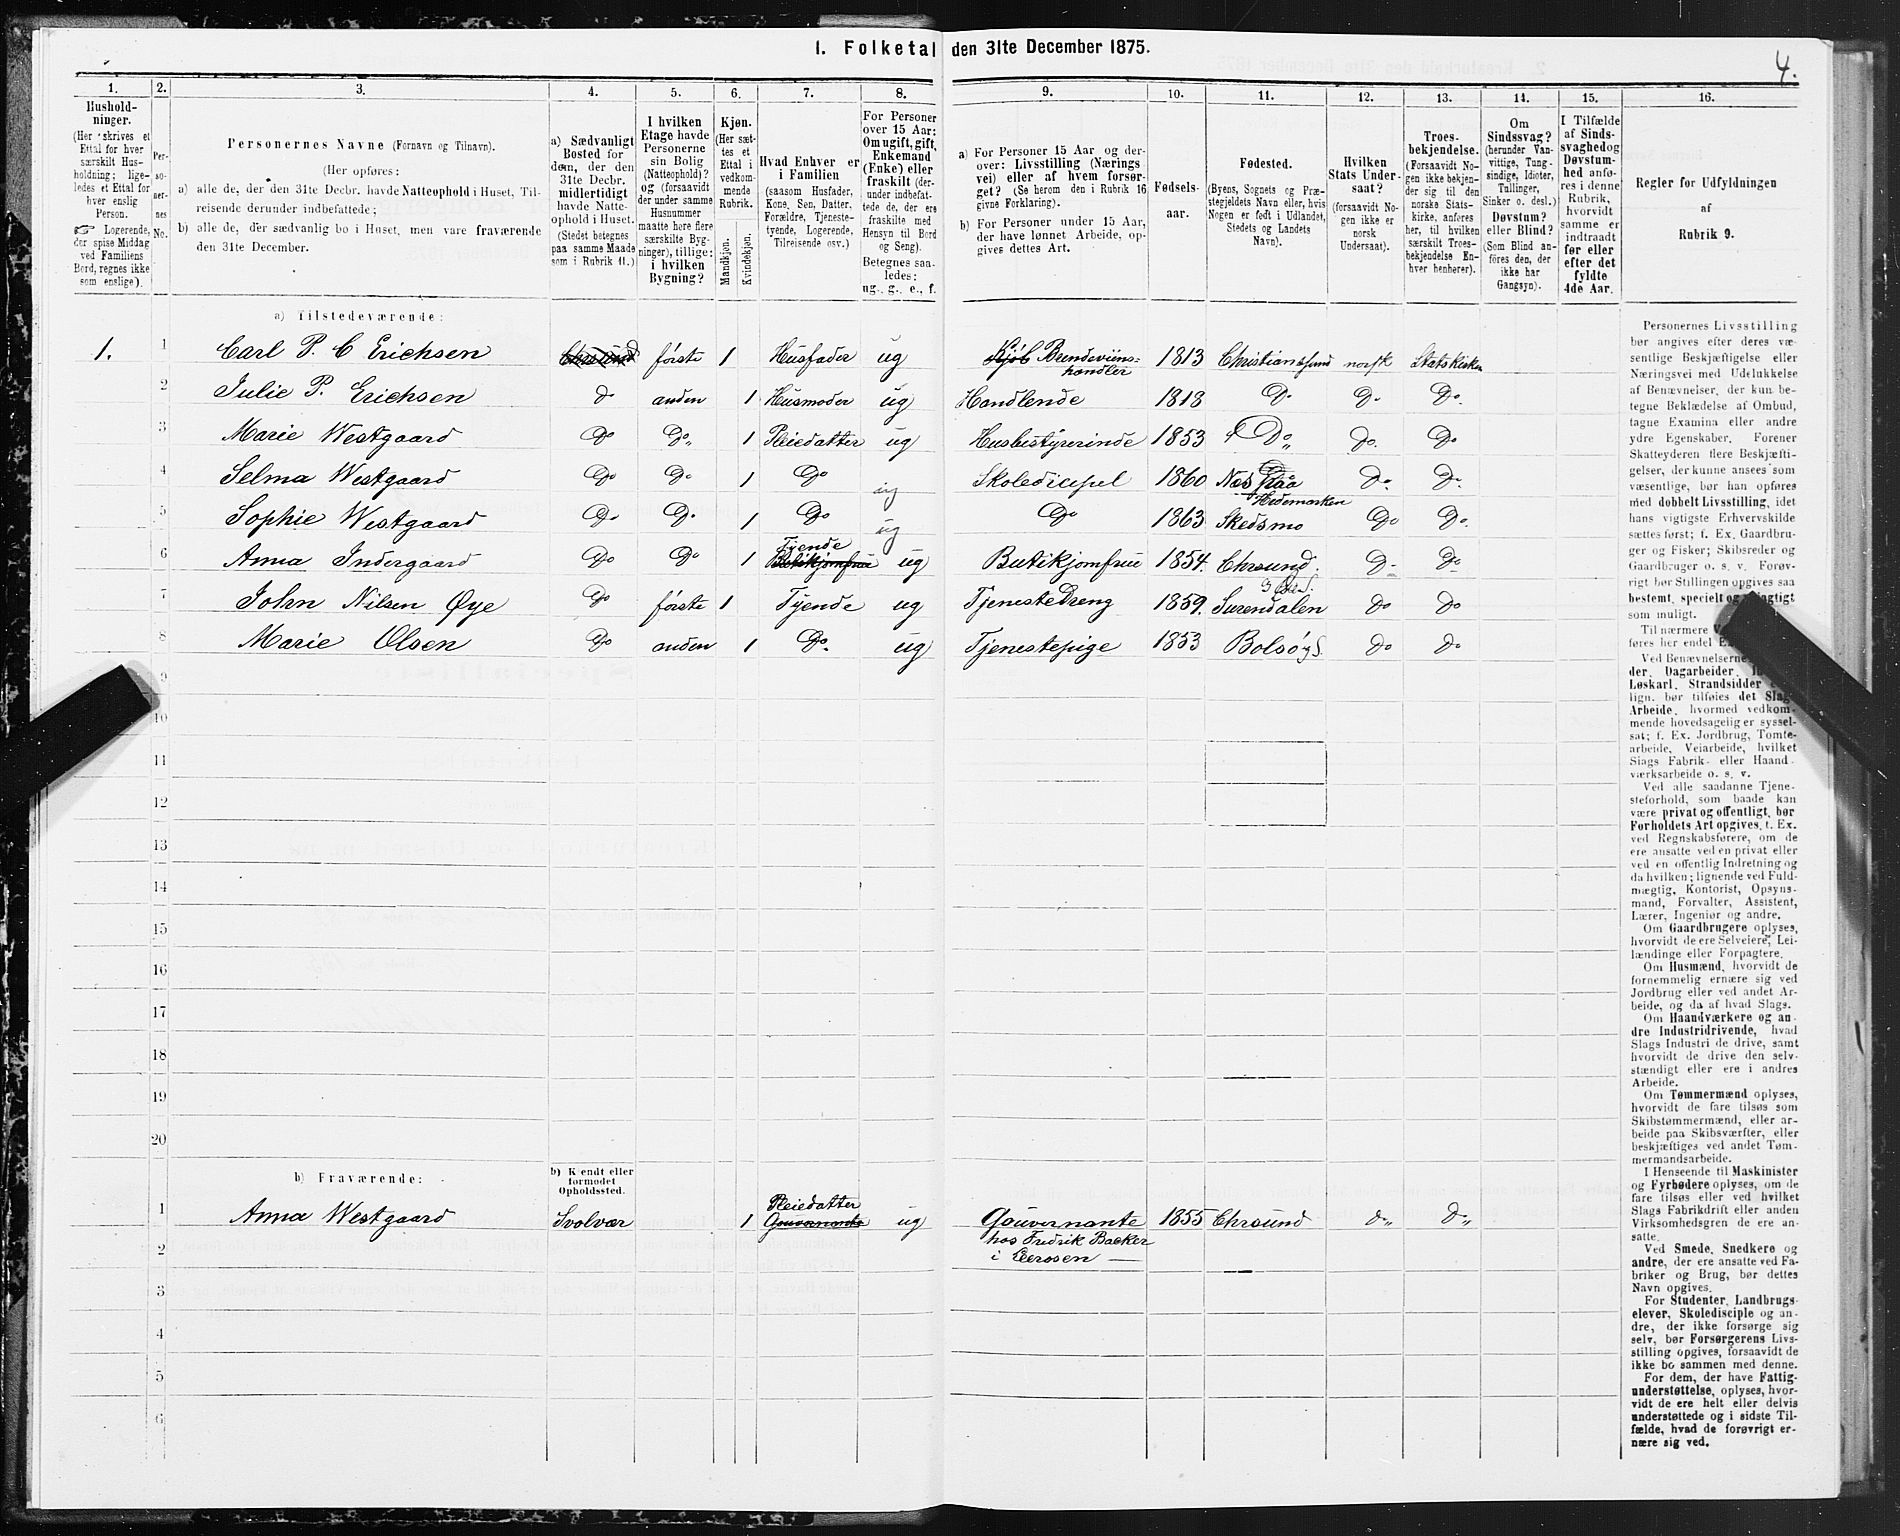 1. Folketal den 31te December 1875.
4.
1. 2. 3. 4. 5. 6. 7. 8. 9. 10. 11. 12. 13. 14. 15. 16.
Hushold-
ninger.
(Her skrives et
Ettal for hver
særskilt Hus-
holdning; lige-
ledes et Ettal for
hver enslig
Person.
☞ Logerende,
der spise Middag
ved Familiens
Bord, regnes ikke
som enslige).
Per-
so-
ner-
nes
No.
Personernes Navne (Fornavn og Tilnavn).
(Her opføres:
a) alle de, der den 31te Decbr. havde Natteophold i Huset, Til-
reisende derunder indbefattede;
b) alle de, der sædvanlig bo i Huset, men vare fraværende
den 31te December.
a) Sædvanligt
Bosted for
dem, der den
31te Decbr.
midlertidigt
havde Natte-
ophold i Huset.
(Stedet betegnes
paa samme Maade
som i Rubrik 11.)
I hvilken
Etage havde
Personerne
sin Bolig
(Natteophold)?
og (forsaavidt
der under samme
Husnummer
maatte høre flere
særskilte Byg-
ninger), tillige:
i hvilken
Bygning?
Kjøn.
(Her sæt-
tes et
Ettal i
vedkom-
mende
Rubrik.
Mandkjøn.
Kvindekjøn.
Hvad Enhver er
i Familien
(saasom Husfader,
Kone, Søn, Datter,
Forældre, Tjeneste-
tyende, Logerende,
Tilreisende osv.)
For Personer
over 15 Aar:
Om ugift, gift,
Enkemand
(Enke) eller
fraskilt (der-
under indbefat-
tede de, der ere
fraskilte med
Hensyn til Bord
og Seng).
Betegnes saa-
ledes:
ug., g., e., f.
a) For Personer 15 Aar og der-
over: Livsstilling (Nærings-
vei) eller af hvem forsør-
get? (Se herom den i Rubrik 16
givne Forklaring).
b) For Personer under 15 Aar,
der have lønnet Arbeide, op-
gives dettes Art.
Fødsels-
aar.
Fødested.
(Byens, Sognets og Præ-
stegjeldets Navn eller, hvis
Nogen er født i Udlandet,
Stedets og Landets
Navn).
Hvilken
Stats Under-
saat?
(forsaavidt No-
gen ikke er
norsk
Undersaat).
Troes-
bekjendelse.
(Forsaavidt No-
gen ikke bekjen-
der sig til den
norske Stats-
kirke, anføres
her, til hvilken
særskilt Troes-
bekjendelse En-
hver henhører).
Om
Sindssvag?
(herunder Van-
vittige, Tung-
sindige, Idioter,
Tullinger,
Sinker o. desl.)
Døvstum?
eller Blind?
(Som Blind an-
føres den, der
ikke har
Gangsyn).
I Tilfælde
af Sinds-
svaghed og
Døvstum-
hed anfø-
res i denne
Rubrik,
hvorvidt
samme er
indtraadt
før eller
efter det
fyldte
4de Aar.
Regler for Udfyldningen
af
Rubrik 9.
a) Tilstedeværende:
1. 1 Carl P. C Erichsen Chrsund første 1 Husfader ug Kjøb Brændeviins-
handler 1813 Christianssund norsk Statskirken
2 Julie P. Erichsen do anden 1 Husmoder ug Handlende 1818 Do Do Do.
3 Marie Westgaard Do Do 1 Pleiedatter ug Husbestyrerinde 1853 Do Do. Do
4 Selma Westgaard Do Do 1 Do ug Skoledicepel 1860 Næs
Hedemarken Do Do
5 Sophie Westgaard Do Do 1 Do ug Do 1863 Skedsmo Do Do.
6 Anna Indergaard Do Do 1 Tyende
Butikjomfrue ug Butikjomfrue 1854. Chrsund. Do Do
7 John Nilsen Øye Do første 1 Tyende ug TjenesteDreng 1859. Surendalen Do Do
8 Marie Olsen Do anden 1 Do. ug Tjenestepige 1853 Bolsøy S. Do Do
9
10
11
12
13
14
15
16
17
18
19
20
b) Fraværende:
b) Kendt eller
formodet
Opholdssted.
1 Anna Westgaard Svolvær 1 Pleiedatter
Gouvernante ug Gouvernante 1855 Chrsund Do Do
hos Fredrik Backer
i
2
3
4
5
6
Personernes Livsstilling
bør angives efter deres væ-
sentlige Beskjæftigelse eller
Næringsvei med Udelukkelse
af Benævnelser, der kun be-
tegne Beklædelse af Ombud,
tagne Examina eller andre
ydre Egenskaber. Forener
Skatteyderen flere Beskjæfti-
gelser, der kunne ansees som
væsentlige, bør han opføres
med dobbelt Livsstilling, idet
hans vigtigste Erhvervskilde
sættes først; f. Ex. Gaardbru-
ger og Fisker; Skibsreder og
Gaardbruger o. s. v. Forøv-
rigt bør Stillingen opgives saa
bestemt, specielt og
som muligt.
Til nærmere
føres her endel
Ved Benævnelserne
der, Dagarbeider,
Løskarl, Strandsidder
lign. bør tilføies det Slags
Arbeide, hvormed vedkom-
mende hovedsagelig er syssel-
sat; f. Ex. Jordbrug, Tomte-
arbeide, Veiarbeide, hvilket
Slags Fabrik- eller Haand-
værksarbeide o. s. v.
Ved alle saadanne Tjene-
steforhold, som baade kan
være privat og offentligt, bør
Forholdets Art opgives, t. Ex.
ved Regnskabsførere, om de
ere ansatte ved en privat eller
ved en offentlig Indretning og
da hvilken; lignende ved Fuld-
mægtig, Kontorist, Opsyns-
mand, Forvalter, Assistent,
Lærer, Ingeniør og andre.
Om Gaardbrugere oplyses,
hvorvidt de ere Selveiere, Lei-
lændinge eller Forpagtere.
Om Husmænd, hvorvidt de
fornemmelig ernære sig ved
Jordbrug eller ved andet Ar-
beide, og da af hvad Slags.
Om Haandværkere og an-
dre Industridrivende, hvad
Slags Industri de drive, samt
hvorvidt de drive den selv-
stændigt eller ere i andres
Arbeide.
Om Tømmermænd oplyses,
hvorvidt de fare tilsøs som
Skibstømmermænd, eller ar-
beide paa Skibsværfter, eller
beskjæftiges ved andet Tøm-
mermandsarbeide.
I Henseende til Maskinister
og Fyrbødere oplyses, om de
fare tilsøs eller ved hvilket
Slags Fabrikdrift eller anden
Virksomhedsgren de ere an-
satte.
Ved Smede, Snedkere og
andre, der ere ansatte ved Fa-
briker og Brug, bør dettes
Navn opgives.
For Studenter, Landbrugs-
elever, Skoledisciple og an-
dre, der ikke forsørge sig
selv, bør Forsørgerens Livs-
stilling opgives, forsaavidt de
ikke bo sammen med denne.
For dem, der have Fattig-
understøttelse, oplyses, hvor-
vidt de ere helt eller delvis
understøttede og i sidste Til-
fælde, hvad de forøvrigt er-
nære sig ved.